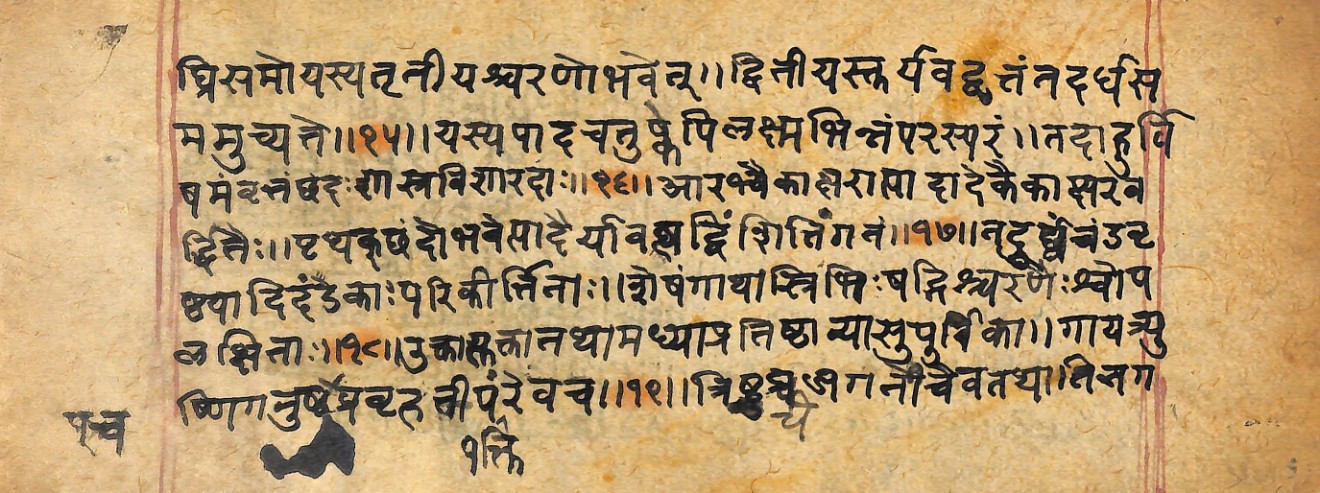 घ्रिसमोयस्यतृतीयश्चरणोभवेत्।।द्वितीयस्तुर्यवद्वृत्तंतदर्धस
ममुच्यते।।१५।।यस्यपादचतुष्केपिलक्ष्मभिन्नंपरस्परं।।तदाहुर्वि
षमंवृत्तंछंदःशास्त्रविशारदाः।।१६।।आरभ्यैकाक्षरात्पादादेकैकाक्षरव
र्द्धितैः।।पृथक्छंदोभवेत्पादैर्यावत्षड्विंशतिंगतं।।१७।।तदूर्ध्वंचंडवृ
ष्ट्यादिदंडकाःपरिकीर्त्तिताः।।शेषंगाथास्त्रिभिःषड्भिश्चरणैःश्चोप
लक्षिताः।।१८।।उक्तात्युक्तातथामध्याप्रतिष्ठान्यासुपूर्विका।।गायत्र्यु
ष्णिगनुष्टुप्चबृहतीपंरेवच।।१९।।त्रिष्टुप्चजगतीचैवतथातिजग
पंच
१क्ति